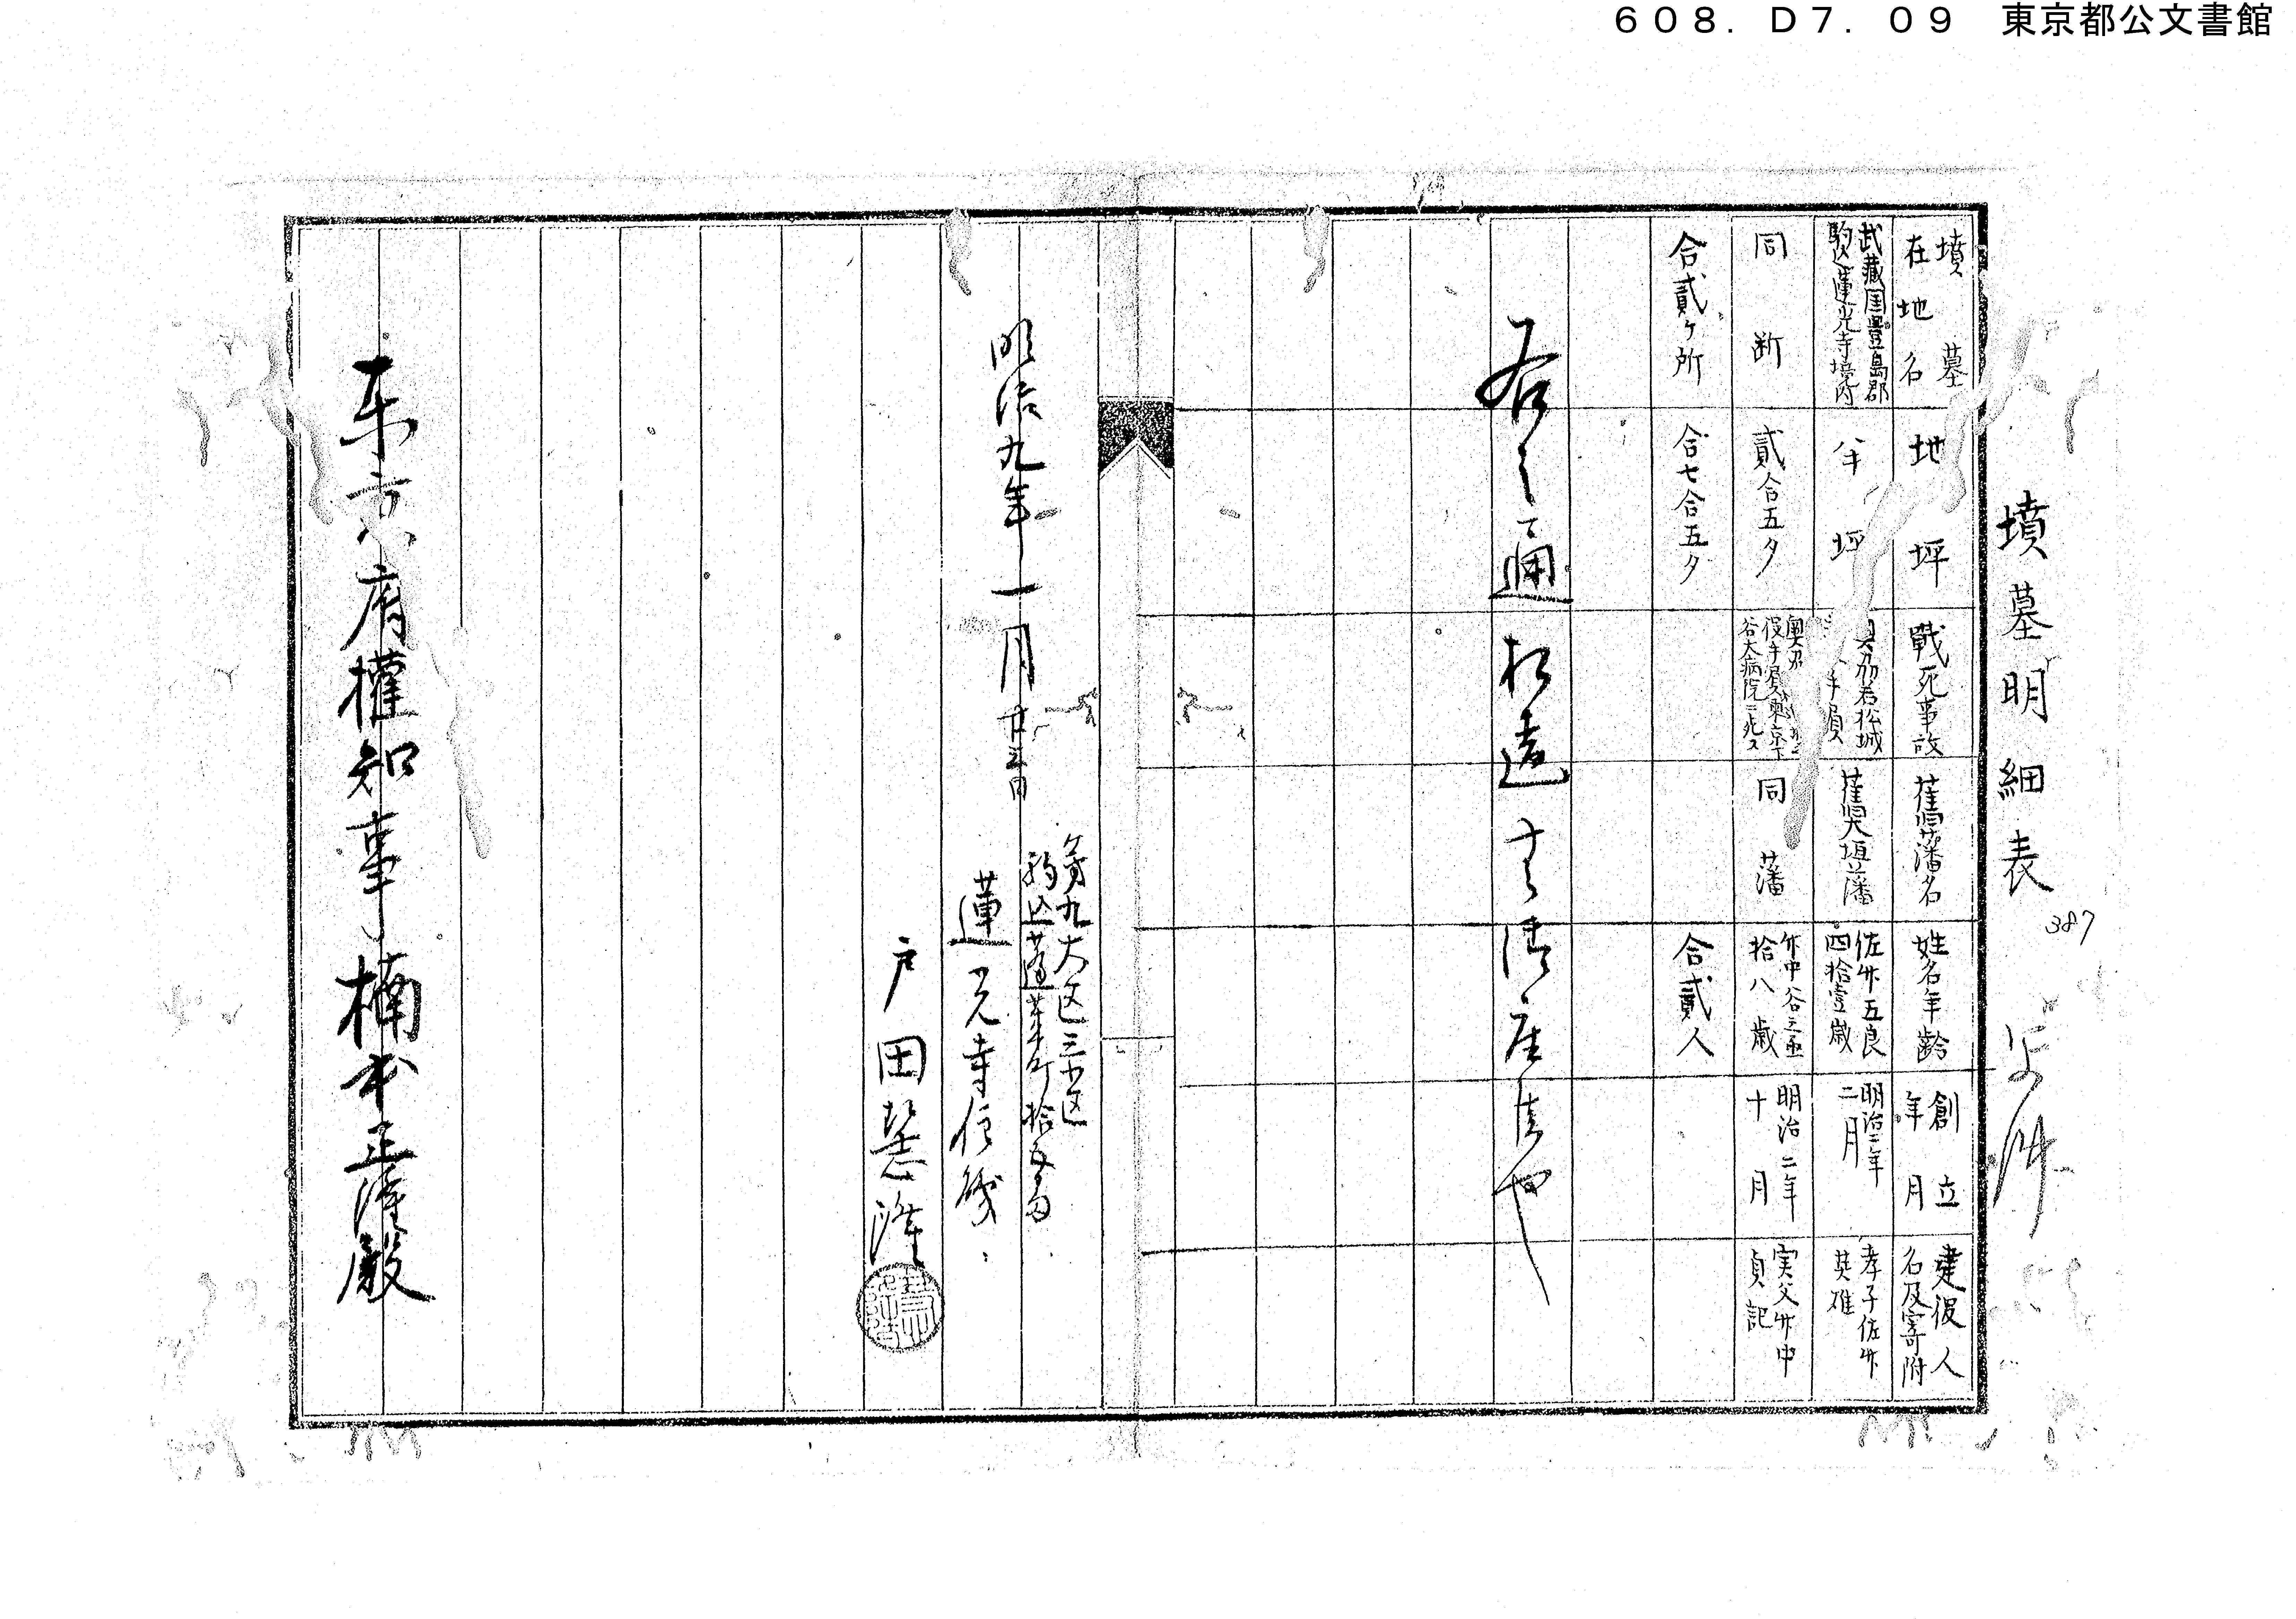 608. D7. 09 東京都公文書館
墳墓明細表
387
墳墓
在地名
地坪
戰死事故
舊藩名
姓名年齢
創立
年月
建役人
名及寄附
武藏国豊島郡
駒込蓮光寺境内
半坪
若松城
舊大垣藩
佐竹五良
四拾壹歳
明治二年
二月
孝子佐竹
同断
貳合五夕
手負東京下
谷大病院ニ死ス
同藩
竹中谷之亟
拾八歳
明治二年
十月
実父竹中
貞記
合貳ヶ所
合七合五夕
合貳人
右之通相違無御座候也
明治九年一月廿三日
第九大区三小区
駒込蓬莱町拾五番
蓮光寺住職
戸田慧隆
東京府權知事楠本正隆殿